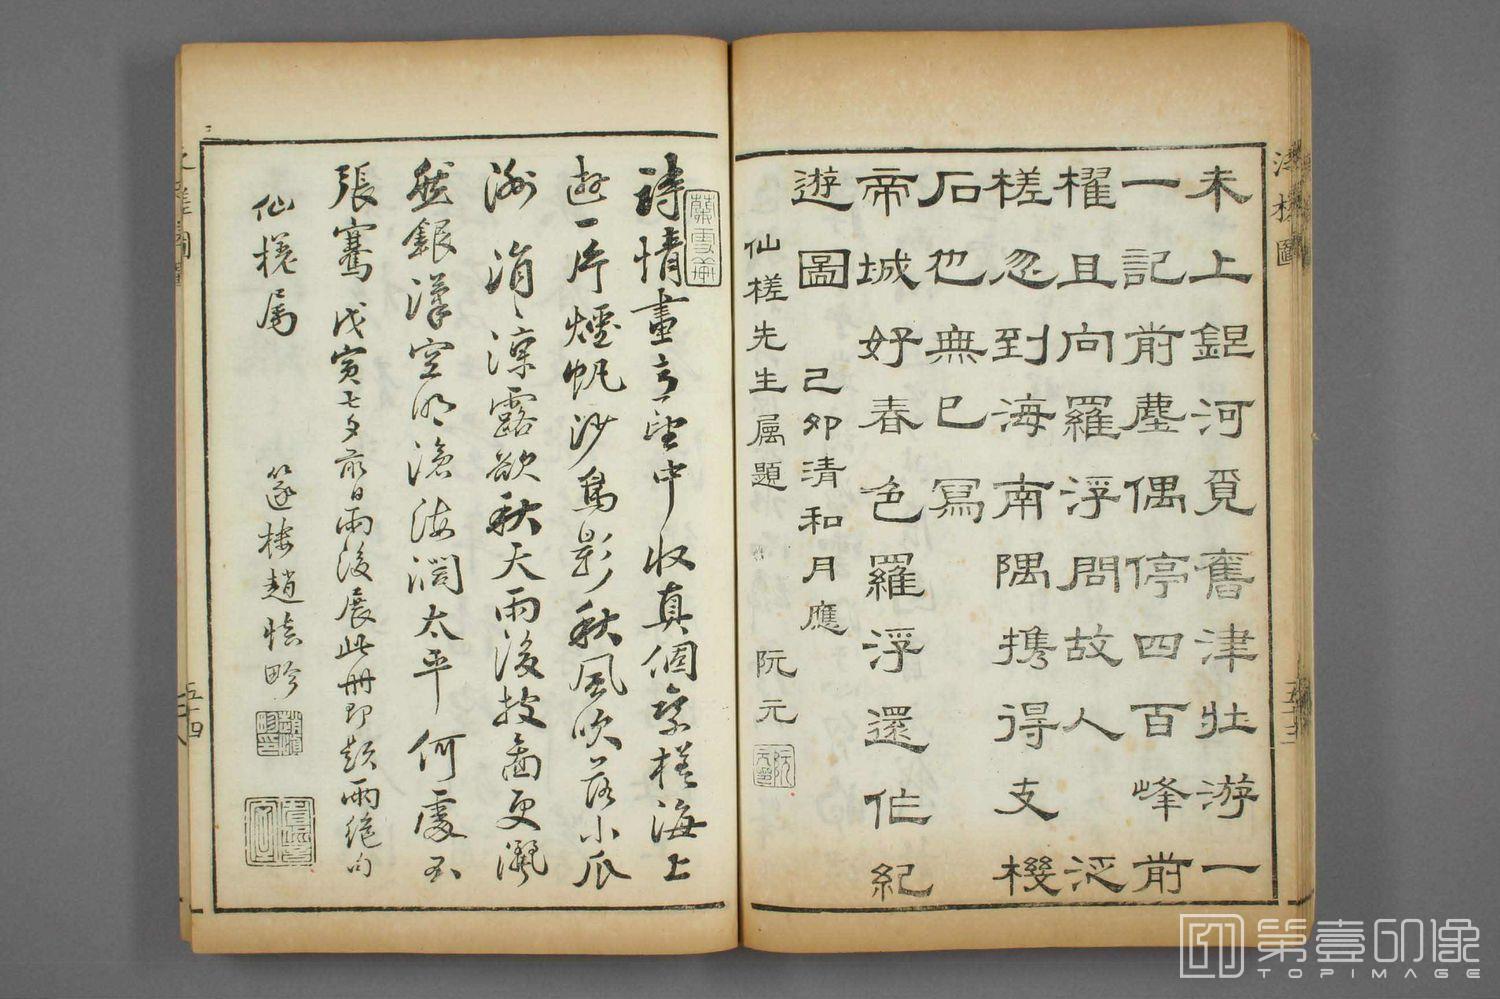 泛槎圖
未上銀河覓舊津壯游一
一記前塵偶停四百峰前
櫂且向羅浮問故人 泛
槎忽到海南隅携得支機
石也無已寫
帝城好春色羅浮還作紀
遊圖 己卯清和月應
仙槎先生屬題 阮元
阮元
詩情畫意望中收真個乘槎海上
遊一片煙帆沙鳥影秋風吹落小瓜
洲 涓〻凉露欲秋天雨後披圖更灑
然銀漢空明滄海濶太平何處
張騫 戊寅七夕前日雨後展此册即題兩絕句
仙槎屬 篴樓趙慎畛
五十四
第壹印像
TOPIMAGE